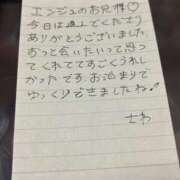 エンジュのお兄様♡
今日は選んでくださり
ありがとうございました。
ずっと会いたいって思っ
てくれててすごくうれし
かったです。お泊まりで
ゆっくりできましたね♪
さわ